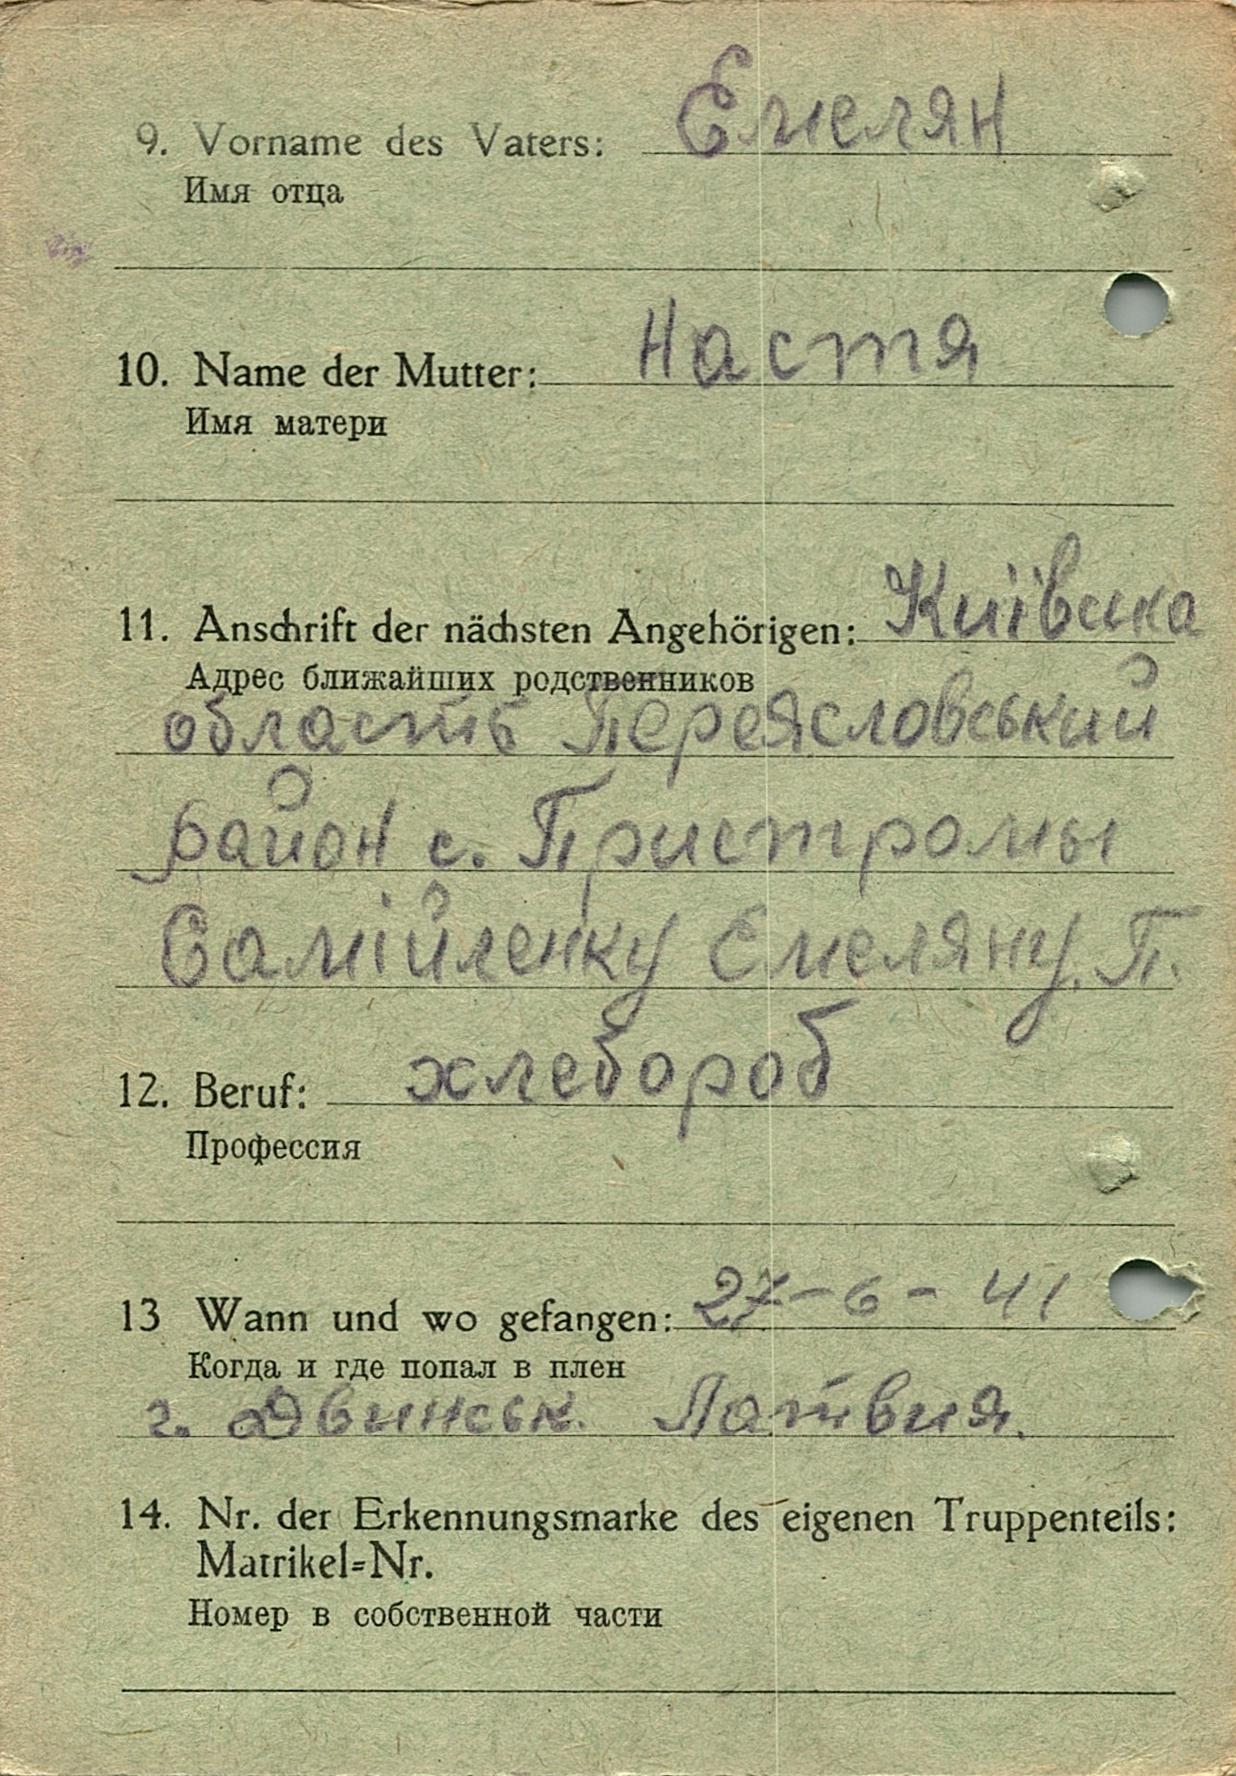 9. Vorname des Vaters: Емелян
Имя отца
10. Name der Mutter: Настя
Имя матери
11. Anschrift der nächsten Angehörigen: Київська
Адрес ближайших родственников
область Переясловський
район с. Пристромы
Самійленку Емеляну. П.
12. Beruf: хлебороб
Профессия
13 Wann und wo gefangen: 27-6-41
Когда и где попал в плен
г. Двинськ. Латвия.
14. Nr. der Erkennungsmarke des eigenen Truppenteils:
Matrikel=Nr.
Номер в собственной части